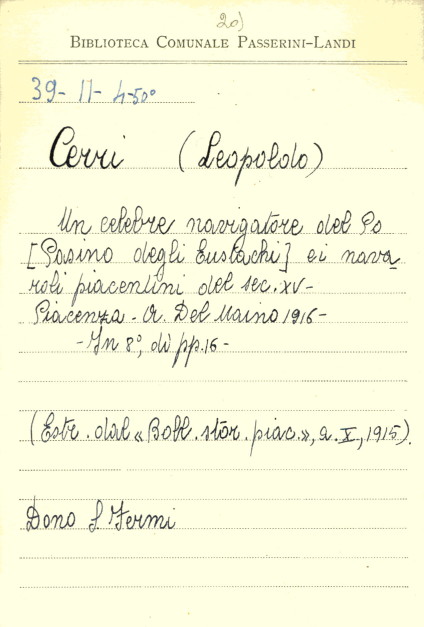 20)
BIBLIOTECA COMUNALE PASSERINI-LANDI
39- 11- 4-50°
Cerri (Leopoldo)
Un celebre navigatore del Po
[Pasino degli Eustachi] ei nava
roli piacentini del sec. XV-
Piacenza - A. Del Maino 1916-
- In 8°, di pp. 16 -
(Estr. dal «Boll. stor. piac.», a. X, 1915).
Dono S. Fermi